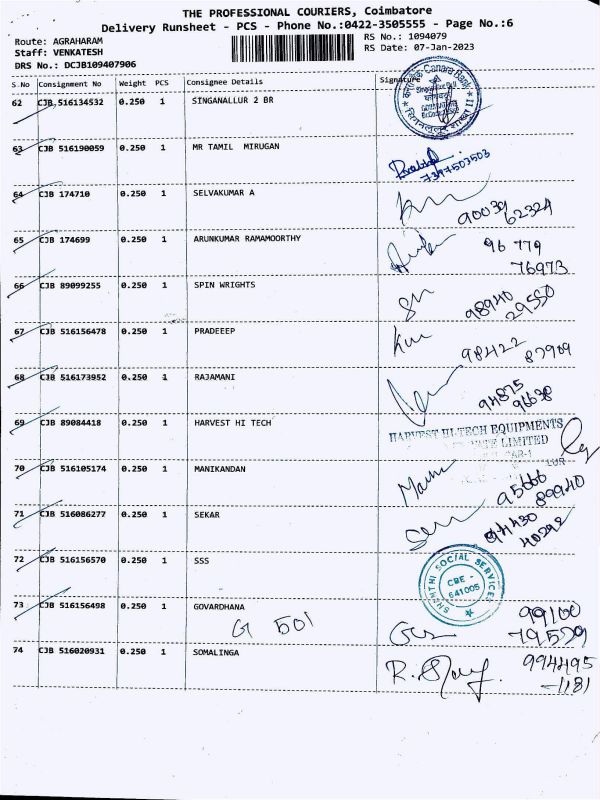 THE PROFESSIONAL COURIERS, Coimbatore
Delivery Runsheet - PCS - Phone No.:0422-3505555 - Page No.:6
Route: AGRAHARAM
RS No.: 1094079
Staff: VENKATESH
RS Date: 07-Jan-2023
DRS No.: DCJB109407906
S.No Consignment No Weight PCS Consignee Details Signature
62 CJB 516134532 0.250 1 SINGANALLUR 2 BR
63 CJB 516190059 0.250 1 MR TAMIL MIRUGAN
7397503503
64 CJB 174710 0.250 1 SELVAKUMAR A
90039 62324
65 CJB 174699 0.250 1 ARUNKUMAR RAMAMOORTHY
96 779
76973
66 CJB 89099255 0.250 1 SPIN WRIGHTS
98940
29550
67 CJB 516156478 0.250 1 PRADEEEP
98422
87909
68 CJB 516173952 0.250 1 RAJAMANI
94875
96638
69 CJB 89084418 0.250 1 HARVEST HI TECH
HARVEST HI-TECH EQUIPMENTS
LIMITED
70 CJB 516105174 0.250 1 MANIKANDAN
95666
89940
71 CJB 516086277 0.250 1 SEKAR
94430
40292
72 CJB 516156570 0.250 1 SSS
SHANTHI SOCIAL SERVICES
CBE -
641005
73 CJB 516156498 0.250 1 GOVARDHANA
G 501
99100
79579
74 CJB 516020931 0.250 1 SOMALINGA
994495
-1181